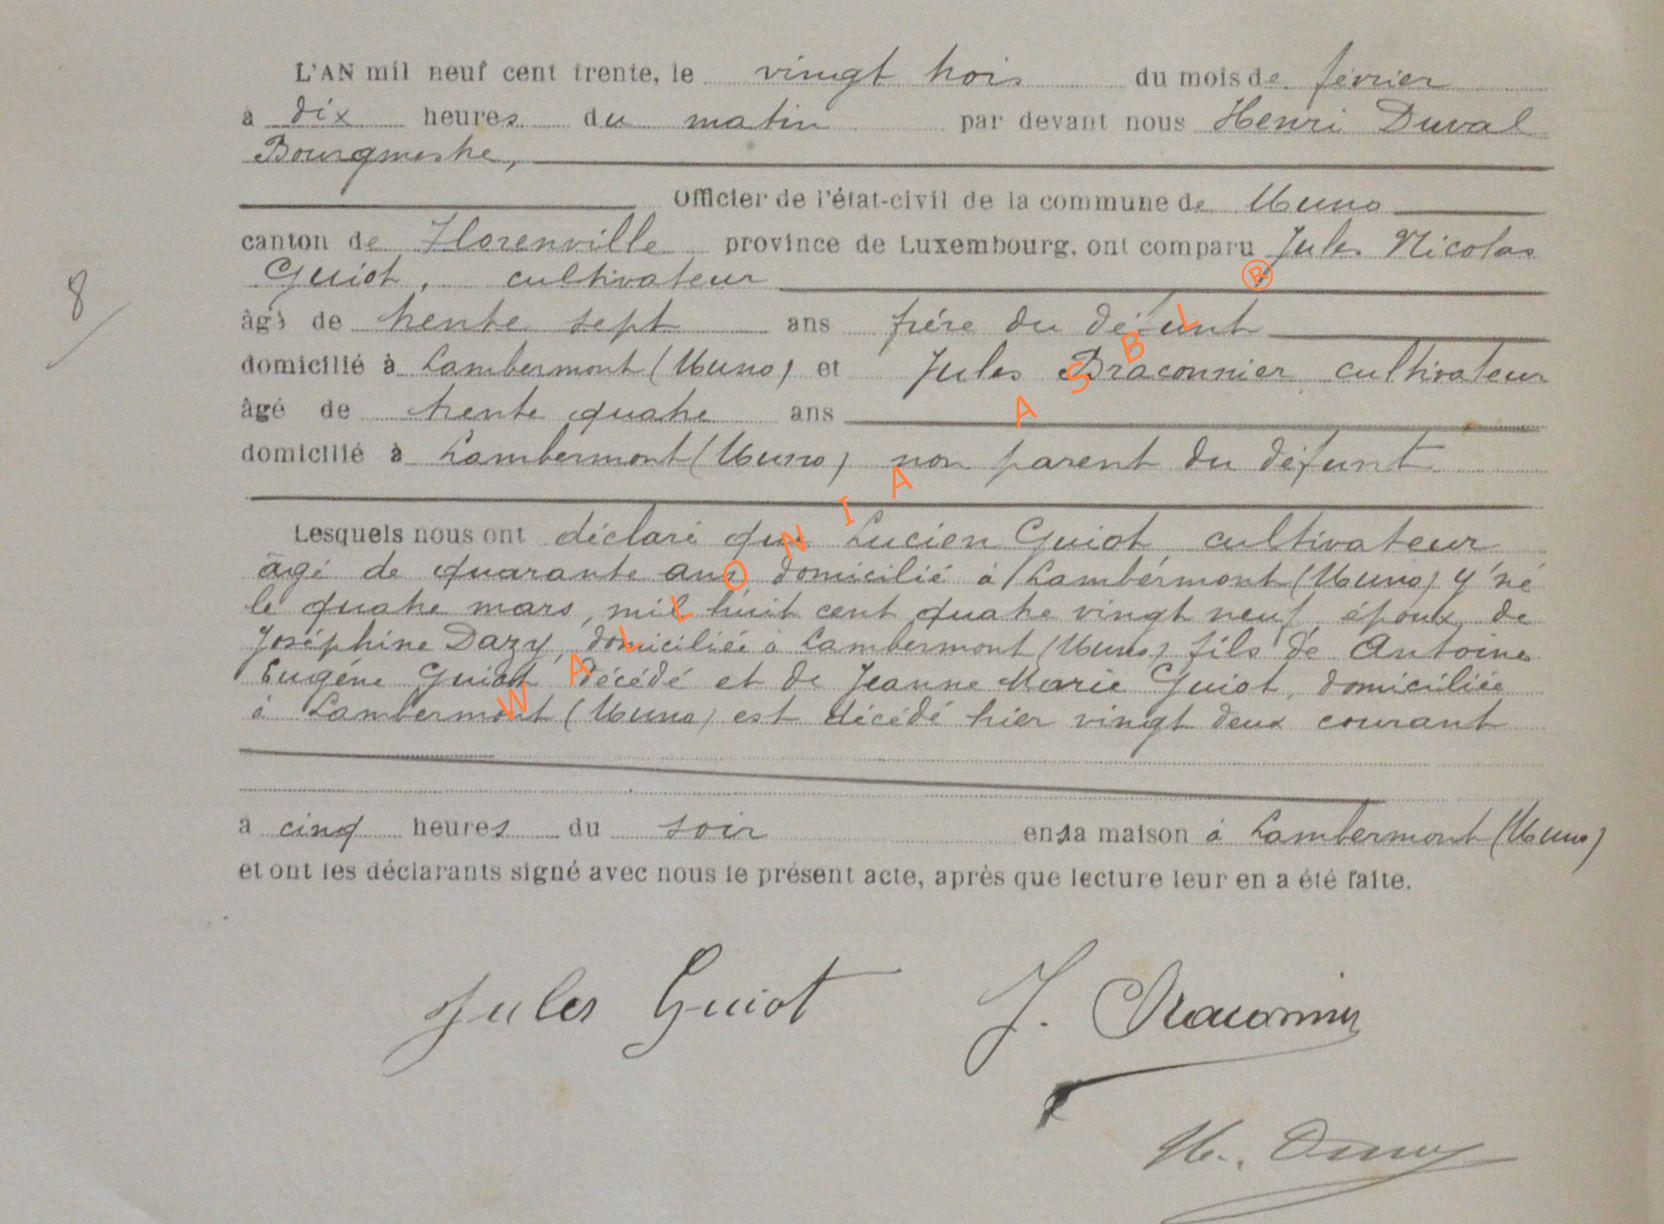 L'AN mil neuf cent trente, le vingt trois du mois de février
à dix heures du matin par devant nous Henri Duval
Bourgmestre,
Officier de l'état-civil de la commune de Muno
canton de Florenville province de Luxembourg, ont comparu Jules Nicolas
Guiot, cultivateur
8
âgé de trente sept ans frère du défunt
domicilié à Lambermont (Muno) et Jules Braconnier cultivateur
âgé de trente quatre ans
domicilié à Lambermont (Muno) non parent du défunt
Lesquels nous ont déclaré que Lucien Guiot cultivateur
âgé de quarante ans domicilié à Lambermont (Muno) y né
le quatre mars, mil huit cent quatre vingt neuf, époux de
Joséphine Dazy, domiciliée à Lambermont (Muno) fils de Antoine
Eugéne Guiot décédé et de Jeanne Marie Guiot, domiciliée
à Lambermont (Muno) est décédé hier vingt deux courant
à cinq heures du soir en sa maison à Lambermont (Muno)
et ont les déclarants signé avec nous le présent acte, après que lecture leur en a été faite.
Jules Guiot J. Braconnier
H. Duval
WALLONIA ASBL ®